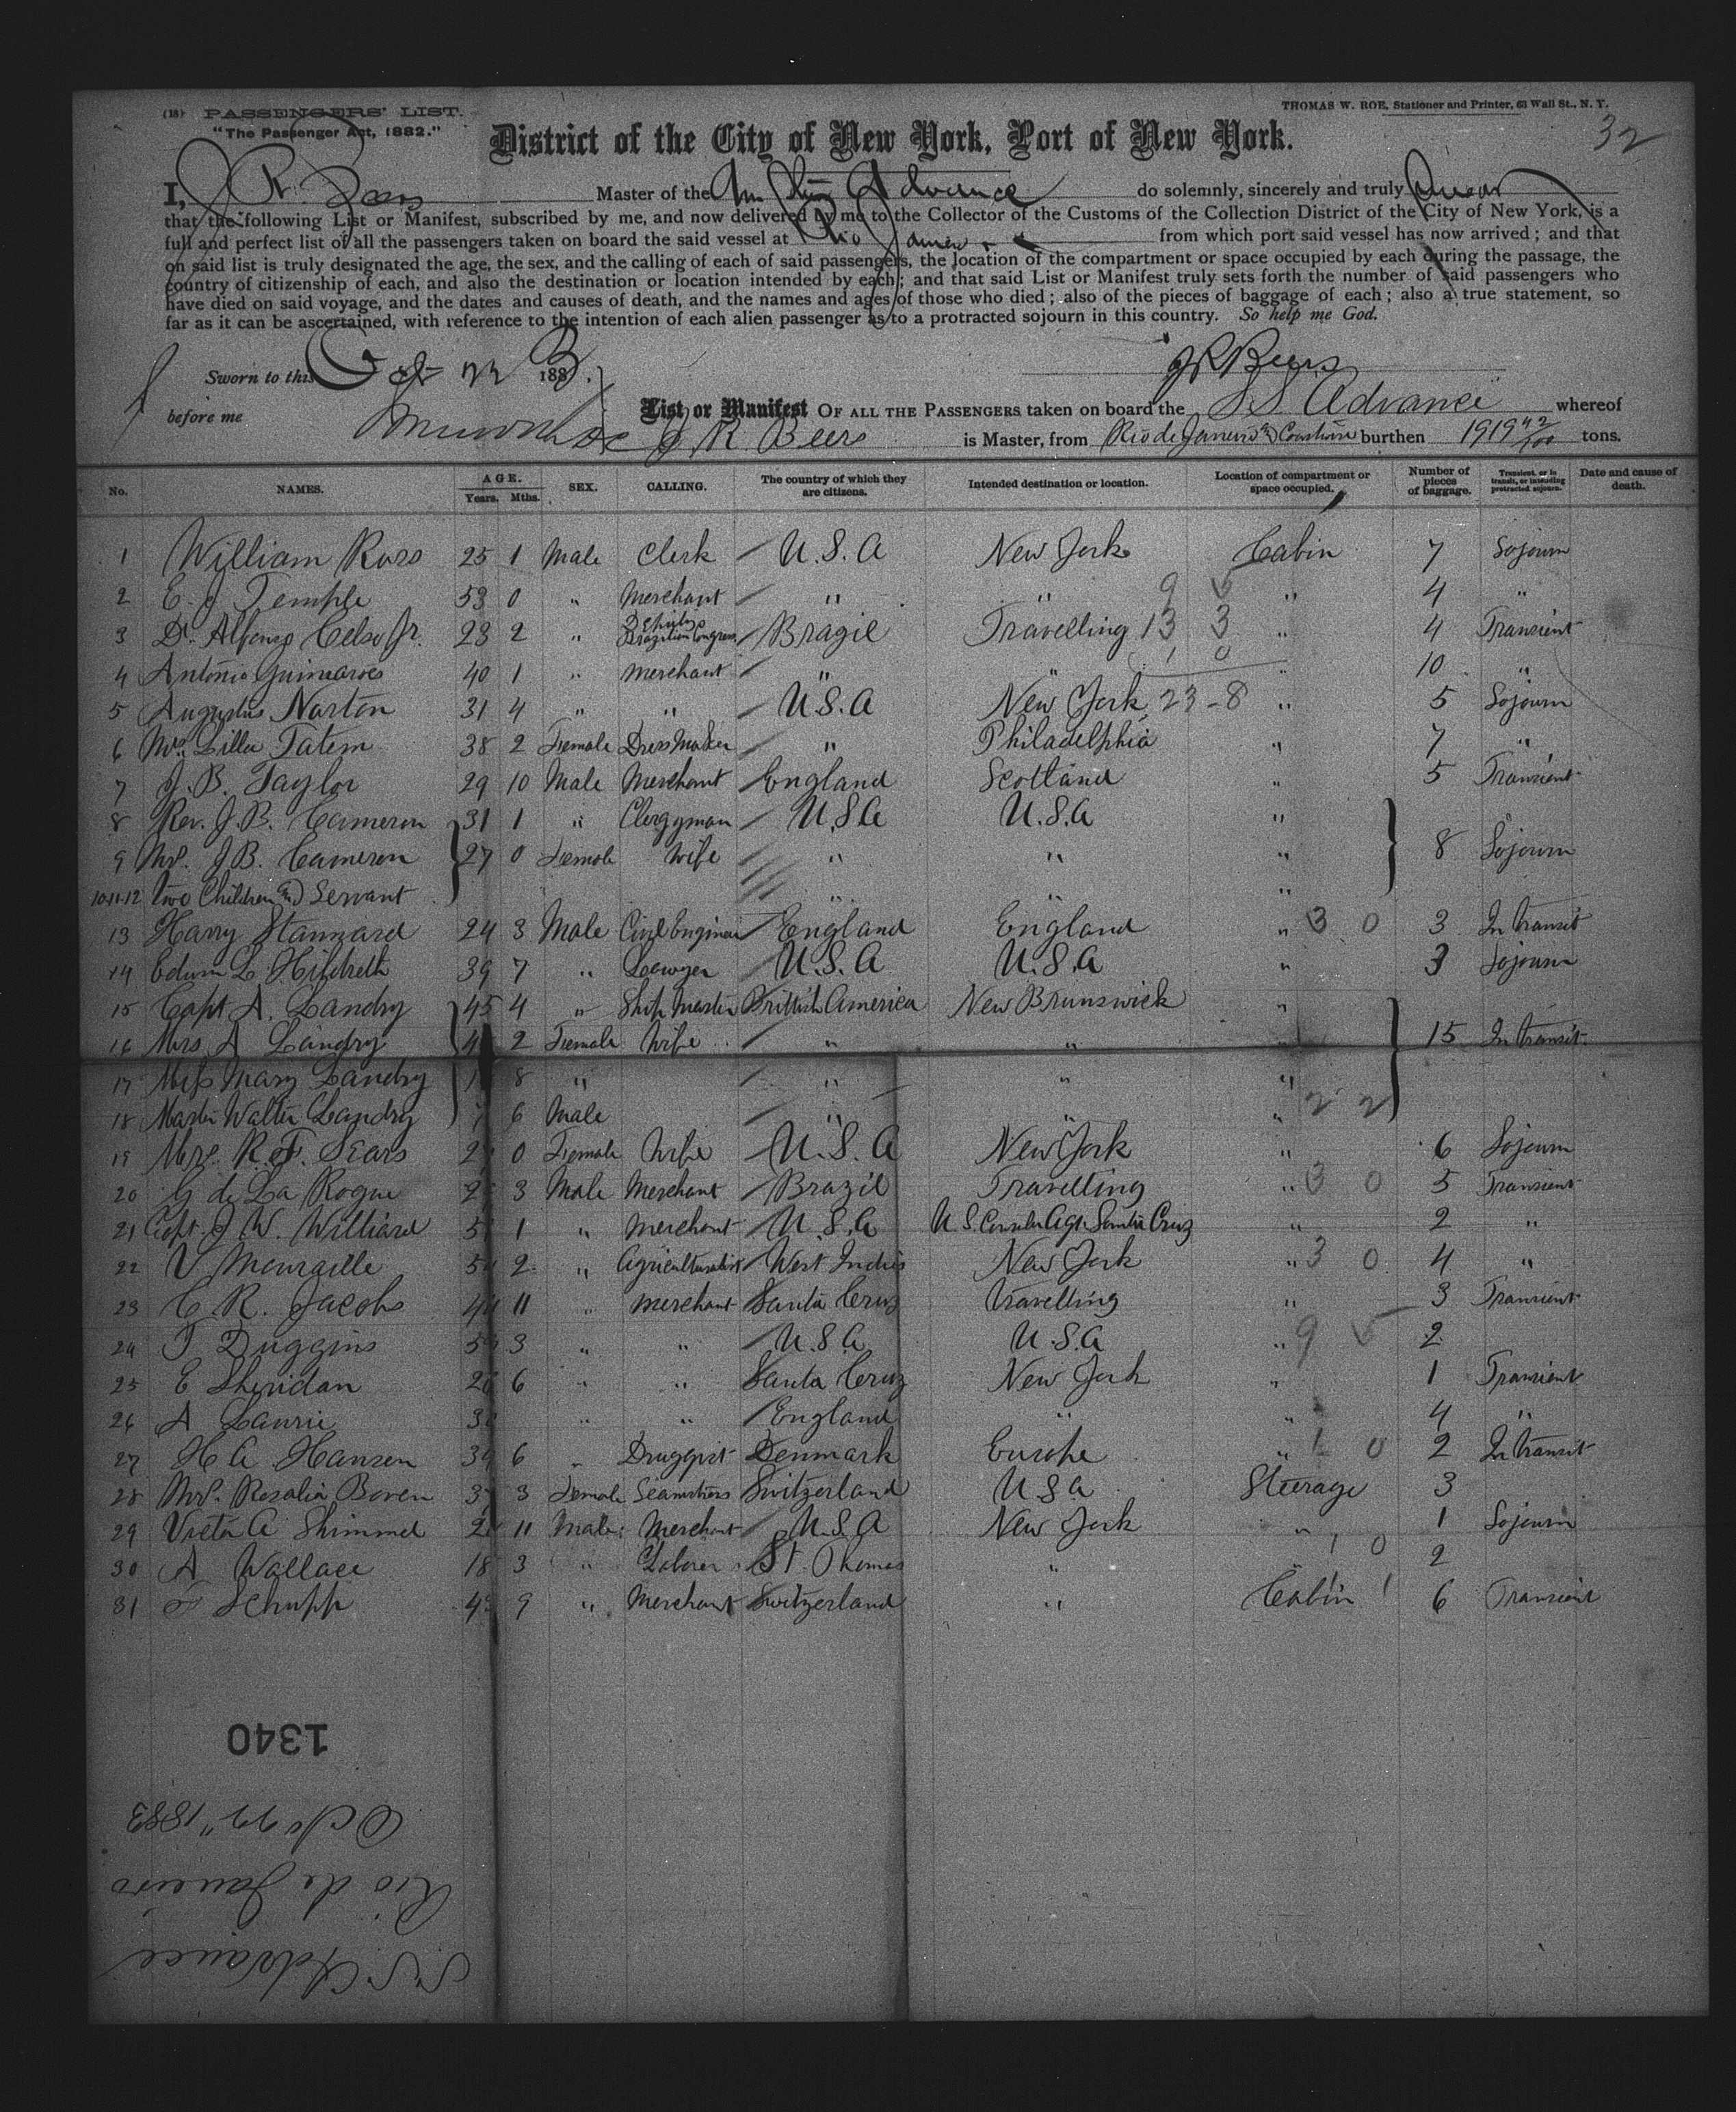 (18) PASSENGERS' LIST.
THOMAS W. ROE, Stationer and Printer, 63 Wall St., N. Y.
"The Passenger Act, 1882."
32
District of the City of New York, Port of New York.
I, J. R. Beers Master of the Am Stm Advance do solemnly, sincerely and truly swear
that the following List or Manifest, subscribed by me, and now delivered by me to the Collector of the Customs of the Collection District of the City of New York, is a
full and perfect list of all the passengers taken on board the said vessel at Rio Janeiro from which port said vessel has now arrived; and that
on said list is truly designated the age, the sex, and the calling of each of said passengers, the location of the compartment or space occupied by each during the passage, the
country of citizenship of each, and also the destination or location intended by each; and that said List or Manifest truly sets forth the number of said passengers who
have died on said voyage, and the dates and causes of death, and the names and ages of those who died; also of the pieces of baggage of each; also a true statement, so
far as it can be ascertained, with reference to the intention of each alien passenger as to a protracted sojourn in this country. So help me God.
Sworn to this Oct 22 1883.
JR Beers
before me
List or Manifest OF ALL THE PASSENGERS taken on board the SS Advance whereof
J R Beers is Master, from Rio de Janeiro & burthen 1919 42/100 tons.
No. NAMES. AGE. Years. Mths. SEX. CALLING. The country of which they are citizens. Intended destination or location. Location of compartment or space occupied. Number of pieces of baggage. Transient, or in transit, or intending protracted sojourn. Date and cause of death.
1 William Ross 25 1 Male Clerk U.S.A New York Cabin 7 Sojourn
2 E. J Temple 53 0 " Merchant " " 9 5 " 4 "
3 Dr. Alfonso Celso Jr. 23 2 " Brazilian Congress Brazil Travelling 13 3 " 4 Transient
4 Antonio Guimaraes 40 1 " Merchant " " 1 0 " 10 "
5 Augustus Norton 31 4 " " U.S.A New York 23-8 " 5 Sojourn
6 Mrs. Lilla Tatem 38 2 Female Dress Maker " Philadelphia " 7 "
7 J. B. Taylor 29 10 Male Merchant England Scotland " 5 Transient
8 Rev. J. B. Cameron 31 1 " Clergyman U.S.A U.S.A "
9 Mrs. J B. Cameron 27 0 Female Wife " " " 8 Sojourn
10.11.12 Two Children & Servant " " "
13 Harry Stannard 24 3 Male Civil Engineer England England " 3 0 3 In transit
14 Edwin L Hildreth 39 7 " Lawyer U.S.A U.S.A " 3 Sojourn
15 Capt A. Landry 45 4 " Ship Master British America New Brunswick "
16 Mrs A Landry 2 Female Wife " " " 15 In transit
17 Miss Mary Landry 8 " " " "
18 Master Walter Landry 7 6 Male " " " 2 2
19 Mrs. R. F. Sears 0 Female Wife U.S.A New York " 6 Sojourn
20 G de La Roque 3 Male Merchant Brazil Travelling " 3 0 5 Transient
21 Capt. J W. Williard 1 " Merchant U.S.A U S. Consular Agt. Santa Cruz " 2 "
22 V Mouraille 2 " Agriculturalist West Indies New York " 3 0 4 "
23 C R. Jacobs 11 " Merchant Santa Cruz Travelling " 3 Transient
24 T Duggins 3 " " U.S.A U.S.A " 9 5 2
25 E Sheridan 6 " " Santa Cruz New York " 1 Transient
26 A Laurie " " England " " 4 "
27 H A Hansen 6 " Druggist Denmark Europe " 1 0 2 In transit
28 Mrs. Rosalia Boven 3 Female Seamstress Switzerland U S A Steerage 3
29 Victor A Shimmel 11 Male Merchant U.S.A New York " 1 Sojourn
30 A Wallace 18 3 " Laborer St. Thomas " " 1 0 2
31 F Schupp 9 " Merchant Switzerland " Cabin 1 6 Transient
1340
Oct 22" 1883
Rio de Janeiro
S.S. Advance